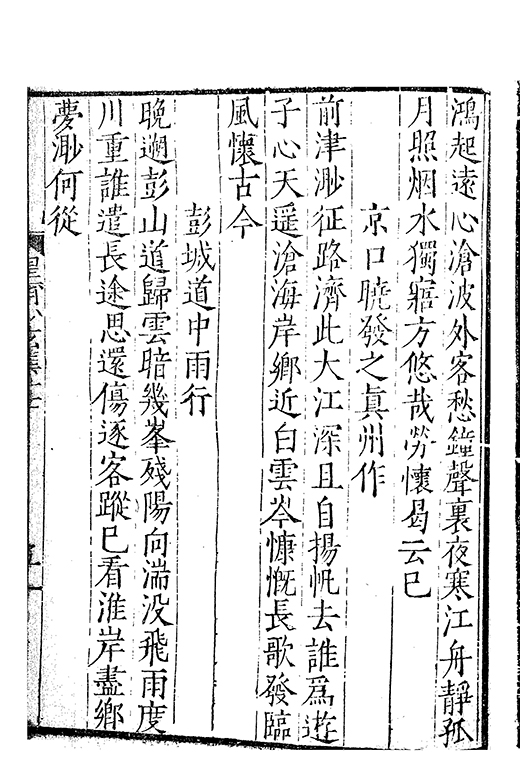 鴻起遠心滄波外客愁鐘聲裏夜寒江舟靜孤
月照烟水獨寤方悠哉勞懷曷云已
京口曉發之眞州作
前津渺征路濟此大江深且自揚帆去誰爲遊
子心天遥滄海岸鄉近白雲岑慷慨長歌發臨
風懷古今
彭城道中雨行
晩遡彭山道歸雲暗幾峯殘陽向湍没飛雨度
川重誰遣長途思還傷逐客蹤已看淮岸盡鄉
夢渺何從